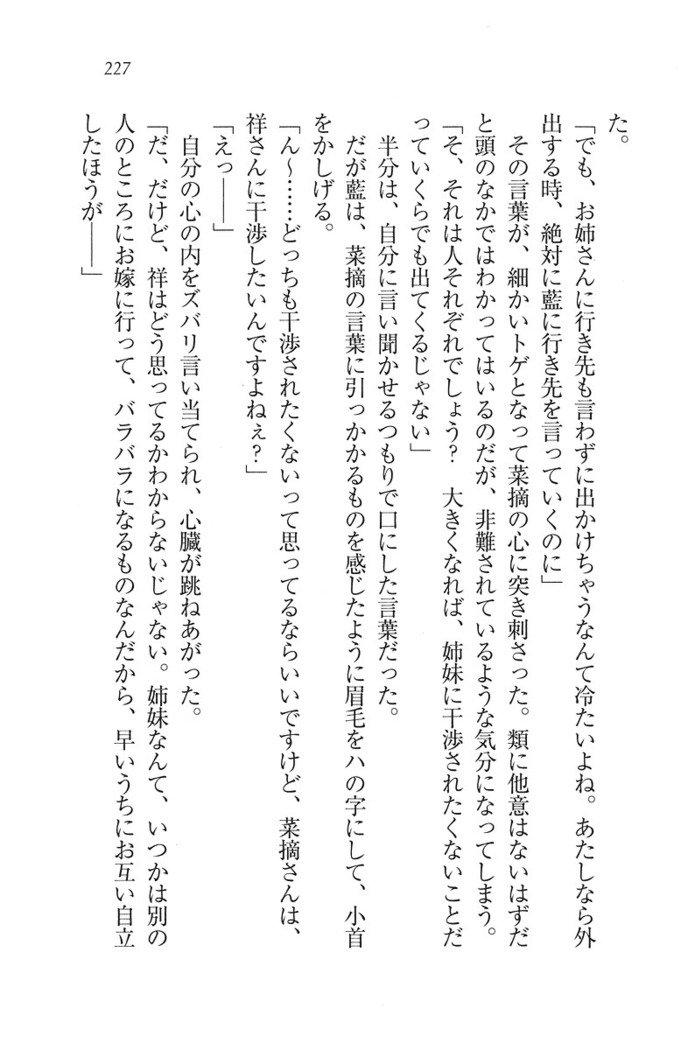 227
た。
「でも、お姉さんに行き先も言わずに出かけちゃうなんて冷たいよね。あたしなら外
出する時、絶対に藍に行き先を言っていくのに」
その言葉が、細かいトゲとなって菜摘の心に突き刺さった。類に他意はないはずだ
と頭のなかではわかってはいるのだが、非難されているような気分になってしまう。
「そ、それは人それぞれでしょう？　大きくなれば、姉妹に干渉されたくないことだ
っていくらでも出てくるじゃない」
半分は、自分に言い聞かせるつもりで口にした言葉だった。
だが藍は、菜摘の言葉に引っかかるものを感じたように眉毛をハの字にして、小首
をかしげる。
「ん～……どっちも干渉されたくないって思ってるならいいですけど、菜摘さんは、
祥さんに干渉したいんですよねぇ？」
「えっ――」
自分の心の内をズバリ言い当てられ、心臓が跳ねあがった。
「だ、だけど、祥はどう思ってるかわからないじゃない。姉妹なんて、いつかは別の
人のところにお嫁に行って、バラバラになるものなんだから、早いうちにお互い自立
したほうが――」